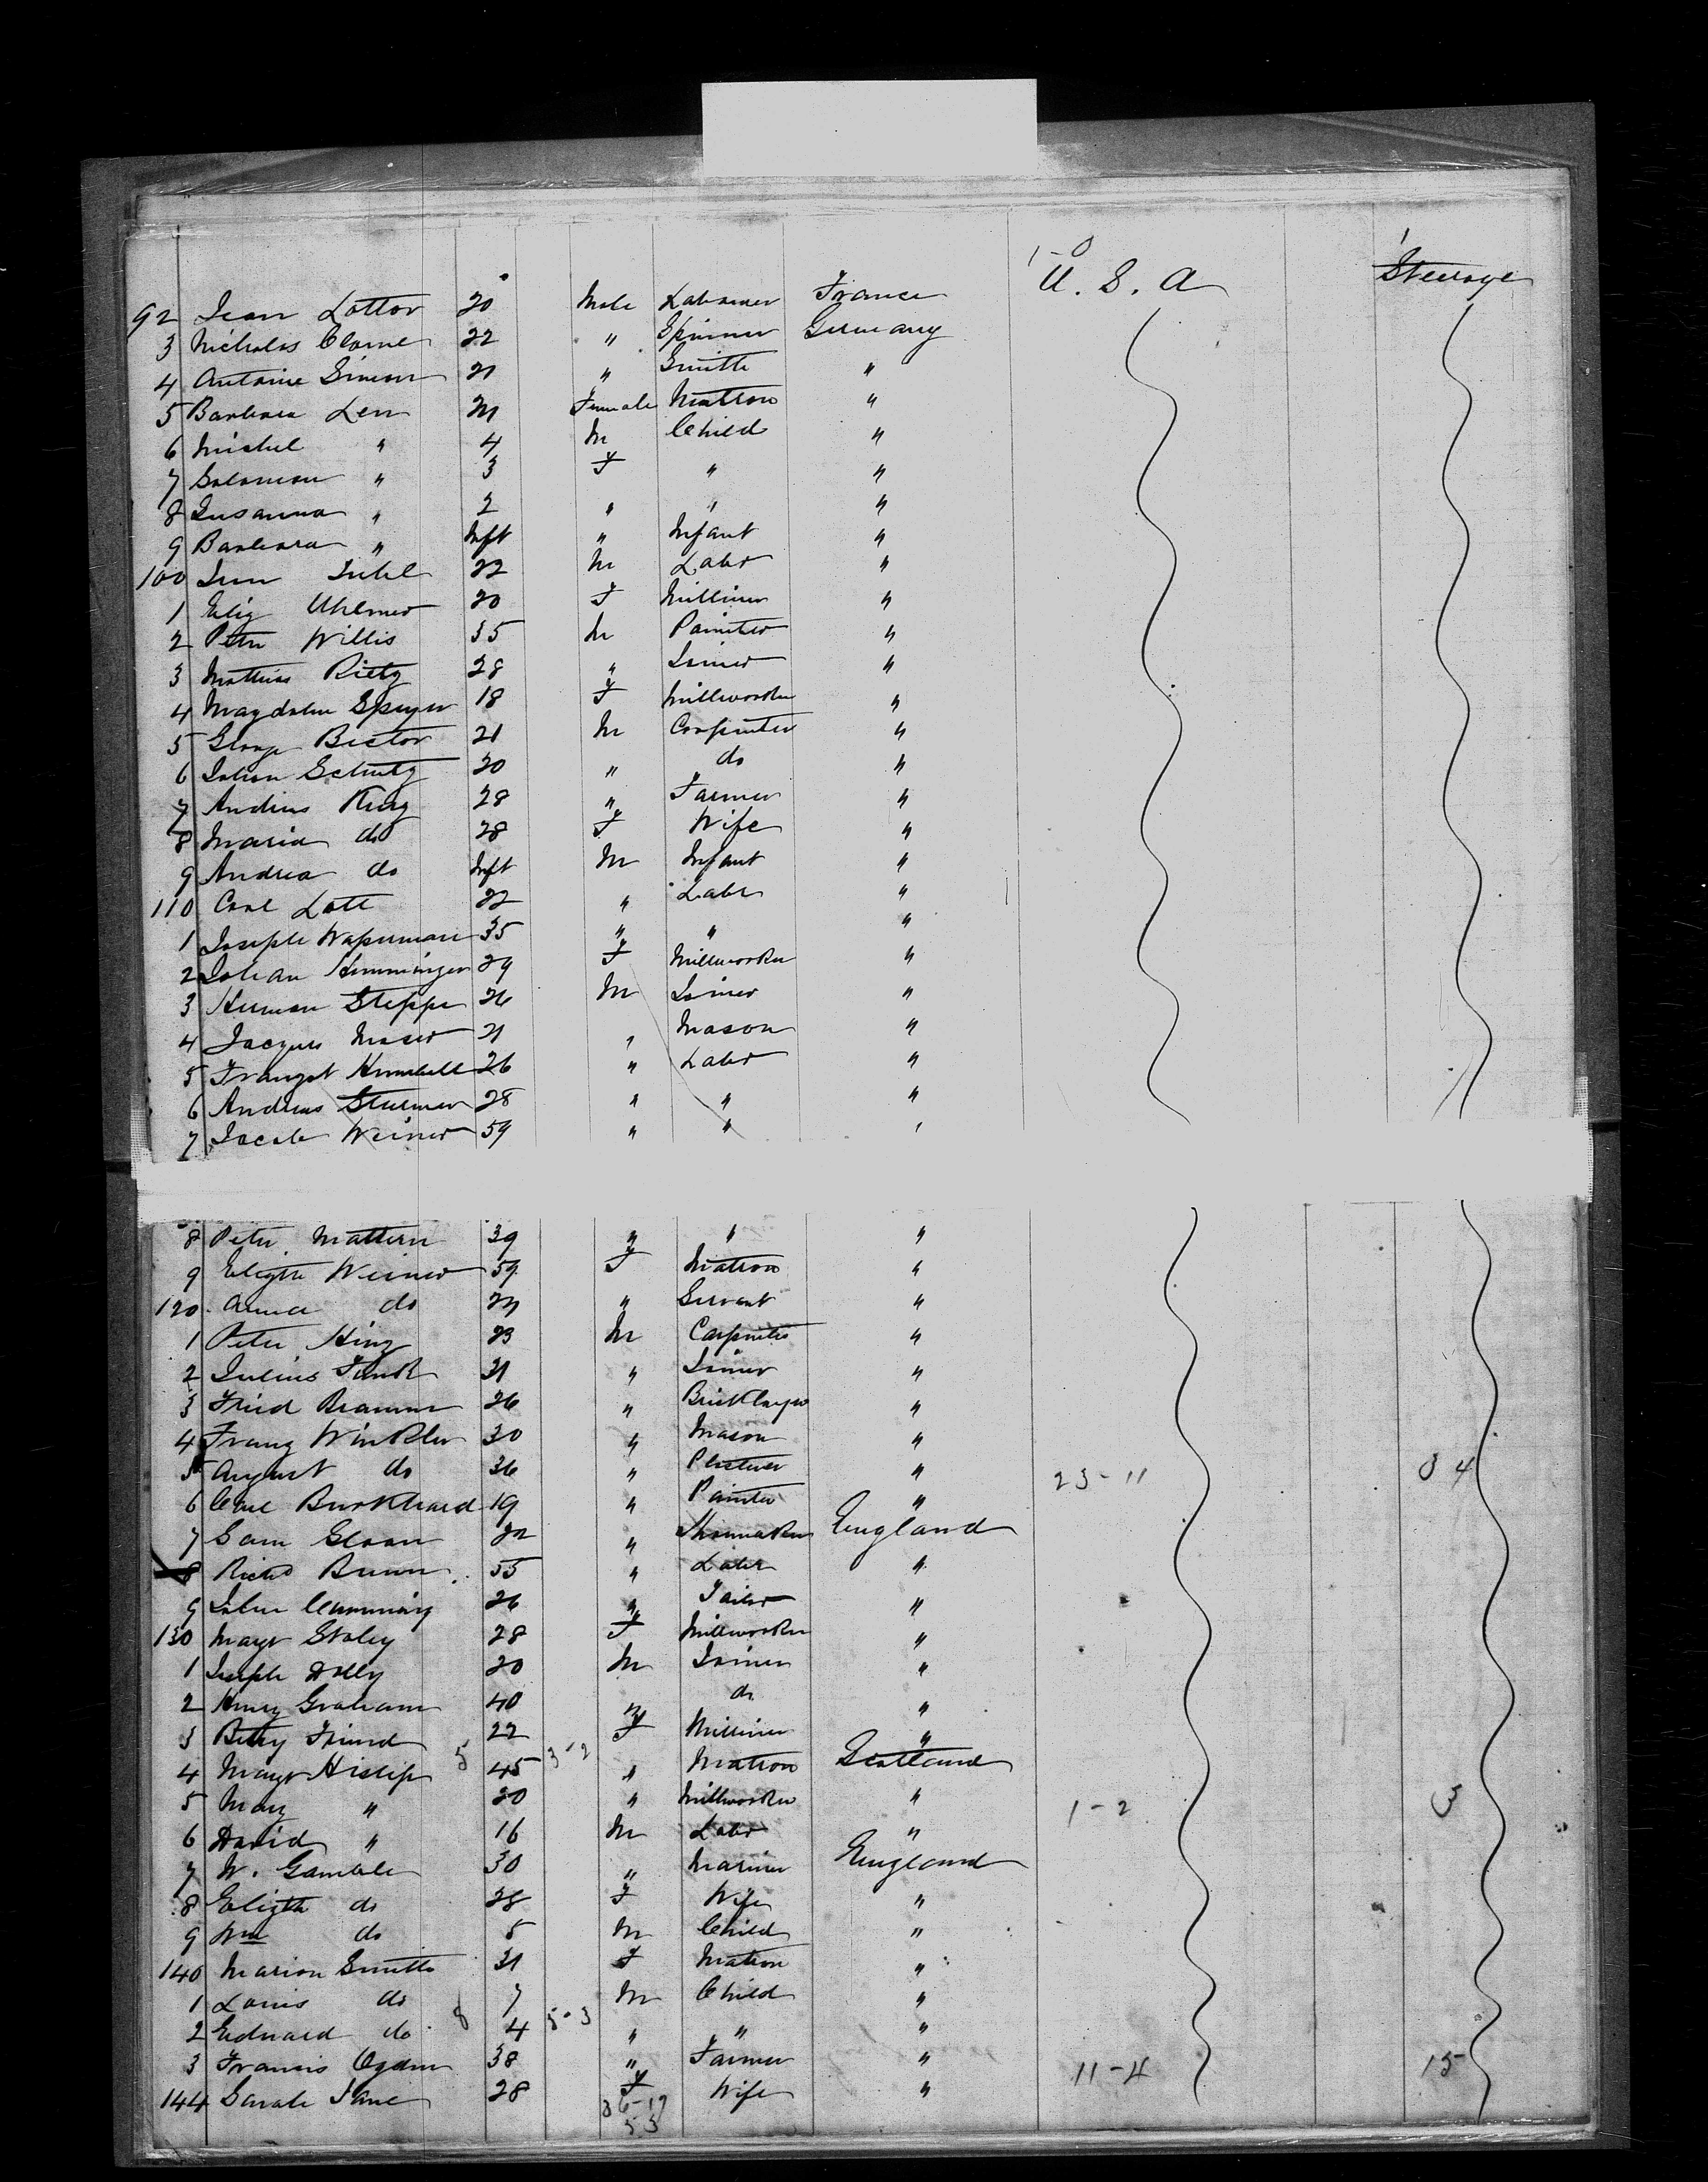 1 - 0 1
U. S. A Steerage
92 Jean Lottor 20 Male Labourer France
3 Nicholas Clome 22 " Spinner Germany
4 Antoine Simon 21 " Smith "
5 Barbara Len 21 Female Matron "
6 Michel " 4 M Child "
7 Salomon " 3 F " "
8 Susanna " 2 " " "
9 Barbara " Inft " Infant "
100 Jean 22 M Labr "
1 Eliz 20 F Milliner "
2 Peter Willis 35 M Painter "
3 Mathias Rietz 28 " Joiner "
4 Magdalen Speyer 18 F Millworker "
5 George Bector 21 M Carpenter "
6 Johan Schutz 30 " do "
7 Andreas King 28 " Farmer "
8 Maria do 28 F Wife "
9 Andrea do Inft M Infant "
110 Carl Lott 22 " Labr "
1 Joseph Waperman 35 " " "
2 Johan Hemminger 29 F Millworker "
3 Herman Steppe 26 M Joiner "
4 Jacques Moser 21 " Mason "
5 26 " Labr "
6 Andreas Sturmer 28 " " "
7 Jacob Weiner 59 " " "
8 Peter Mattern 39 " " "
9 Elizth Weiner 59 F Matron "
120 Anna do 21 " Servant "
1 Peter Hinz 23 M Carpenter "
2 Julius Funk 31 " Joiner "
3 Fried Braumer 26 " Bricklayer "
4 Franz Winkler 30 " Mason "
5 August do 36 " Plasterer " 23-11 34
6 Carl Burkhard 19 " Painter "
7 Sam Sloan 22 " Shoemaker England
8 Richd Brown 55 " Labr "
9 John Cumming 26 " Tailor "
130 Magt Staley 28 F Millworker "
1 Joseph Holly 20 M Joiner "
2 Henry Graham 40 " do "
3 Betsy Friend 22 F Milliner "
4 Magt Hislip 5 45 3-2 " Matron Scotland
5 Mary " 20 " Millworker " 1-2 3
6 David " 16 M Labr "
7 W. Gamble 30 " Mariner England
8 Elizth do 28 F Wife "
9 Wm do 5 M Child "
140 Marion Smith 31 F Matron "
1 Louis do 7 M Child "
2 Edward do 8 4 5-3 " " "
3 Francis Ogden 38 " Farmer " 11-4 15
144 Sarah Jane 28 F Wife "
36-17
53